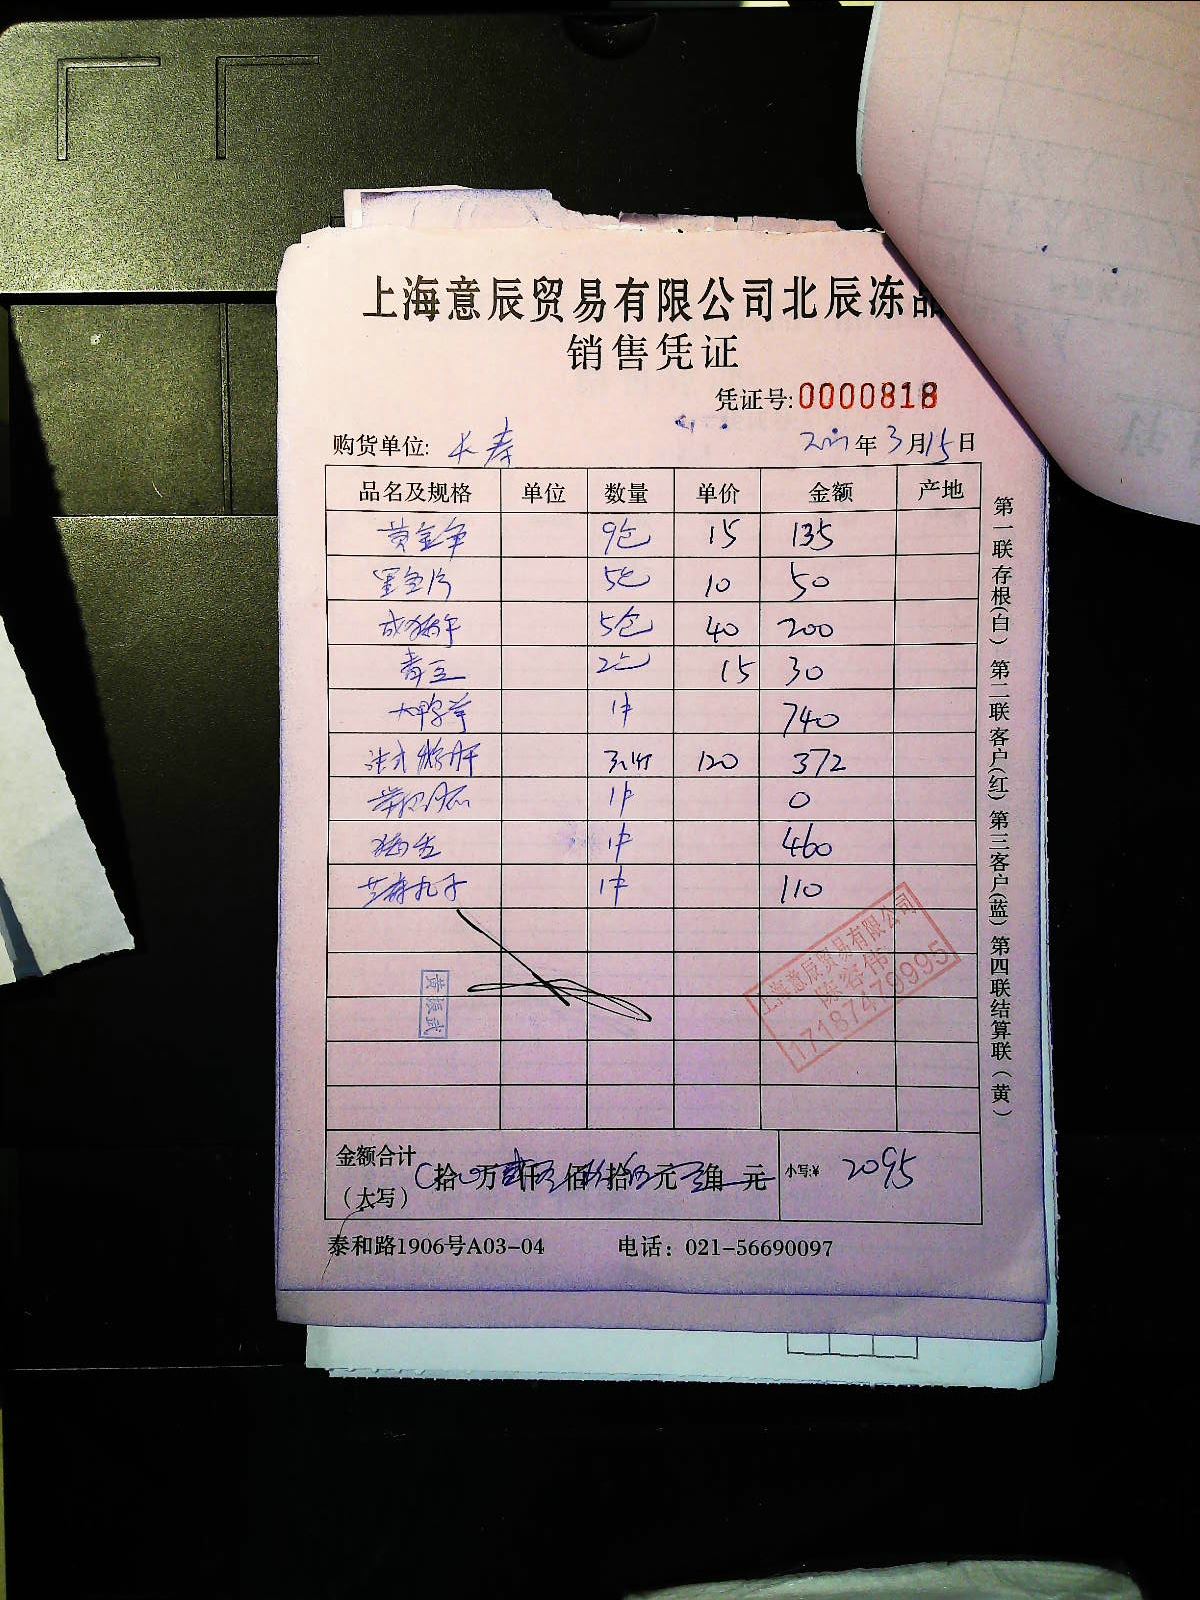 上海意辰贸易有限公司北辰冻品
销售凭证
凭证号:0000818
购货单位: 长寿 年3月15日
品名及规格 单位 数量 单价 金额 产地
9包 15 135
5包 10 50
5包 40 200
青豆 2包 15 30
1件 740
法式 120 372
1件 0
1件 460
芝麻丸子 1件 110
黄振武
上海意辰贸易有限公司
陈容伟
17187479995
金额合计 拾 万 仟 佰 拾 元 角 元 小写:¥ 2095
(大写)
泰和路1906号A03-04 电话：021-56690097
第一联存根(白) 第二联客户(红) 第三客户(蓝) 第四联结算联(黄)